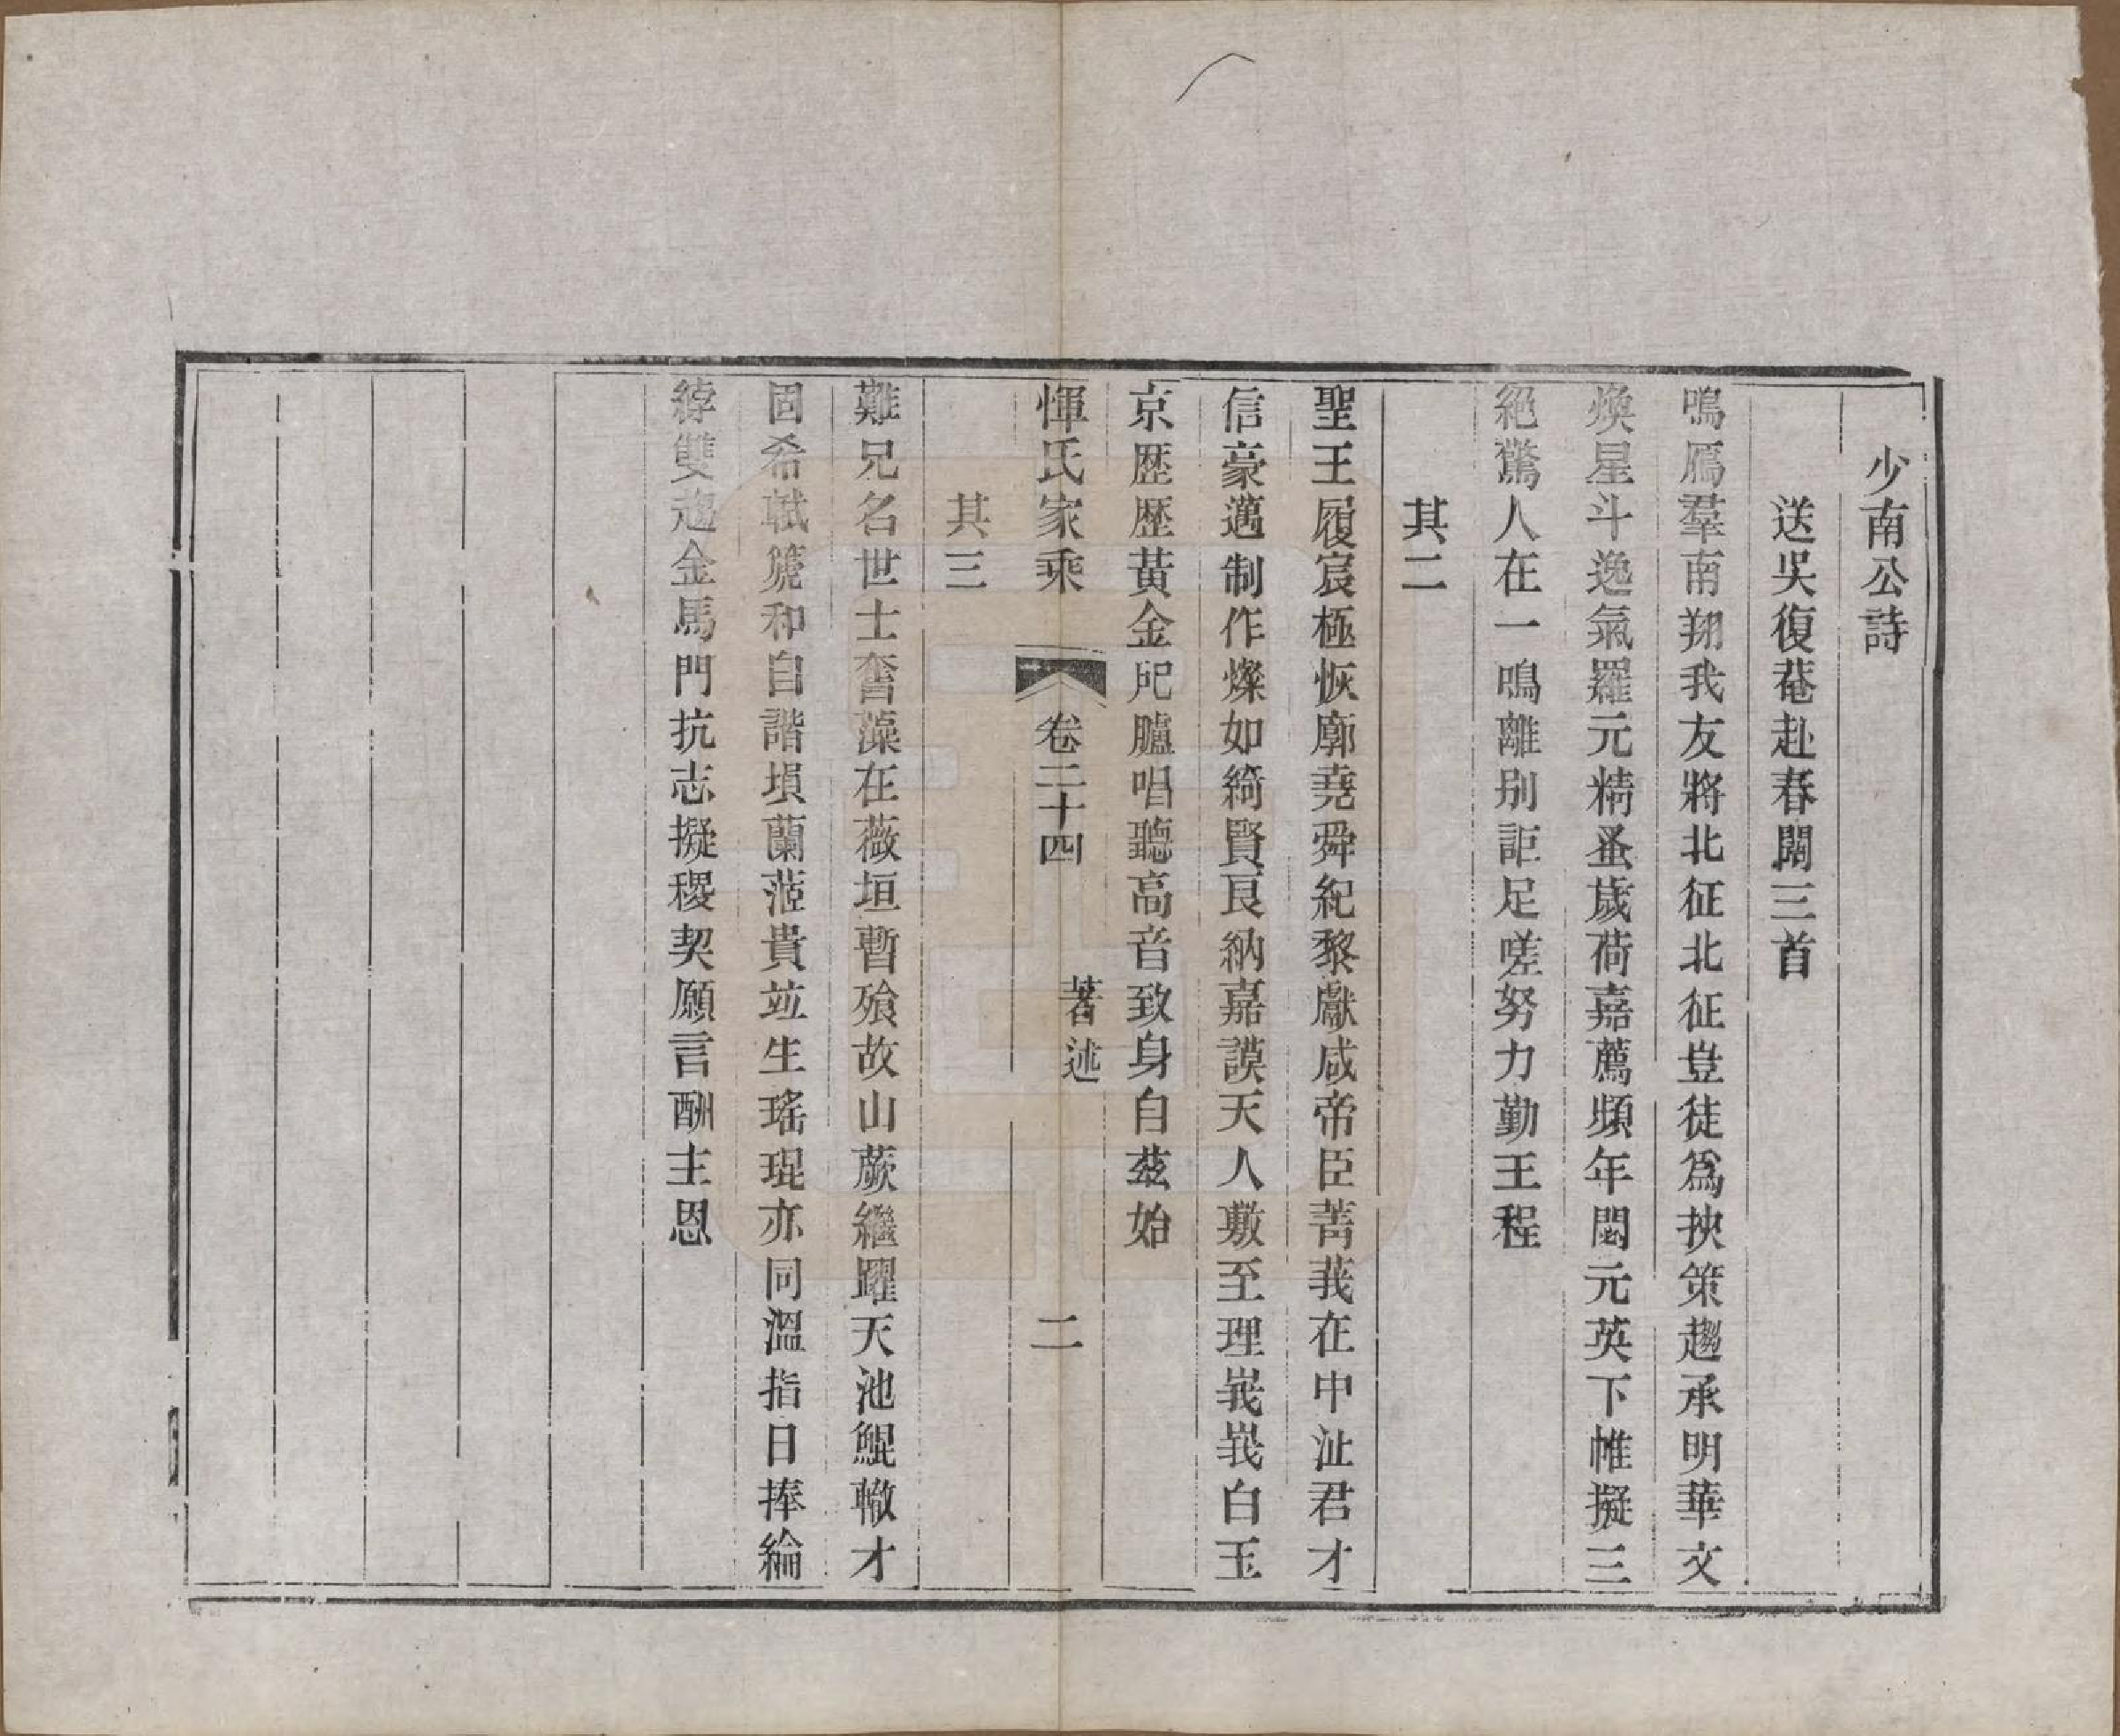 少南公詩
送吳復菴赴春闈三首
鳴鴈羣南翔我友將北征北征豈徒爲挾策趨承明華文
煥星斗逸氣羅元精蚤歲荷嘉薦頻年閟元英下帷擬三
絕驚人在一鳴離别詎足嗟努力勤王程
其二
聖王履宸極恢廓堯舜紀黎獻咸帝臣菁莪在中沚君才
信豪邁制作燦如綺賢良納嘉謨天人敷至理峩峩白玉
京歷歷黃金戺臚唱聽高音致身自茲始
惲氏家乘
卷二十四
著述
二
其三
難兄名世士奮藻在薇垣暫飱故山蕨繼躍天池鯤轍才
固希軾篪和自諧塤蘭蒞貴竝生瑤琨亦同溫指日捧綸
綍雙趨金馬門抗志擬稷契願言酬主恩